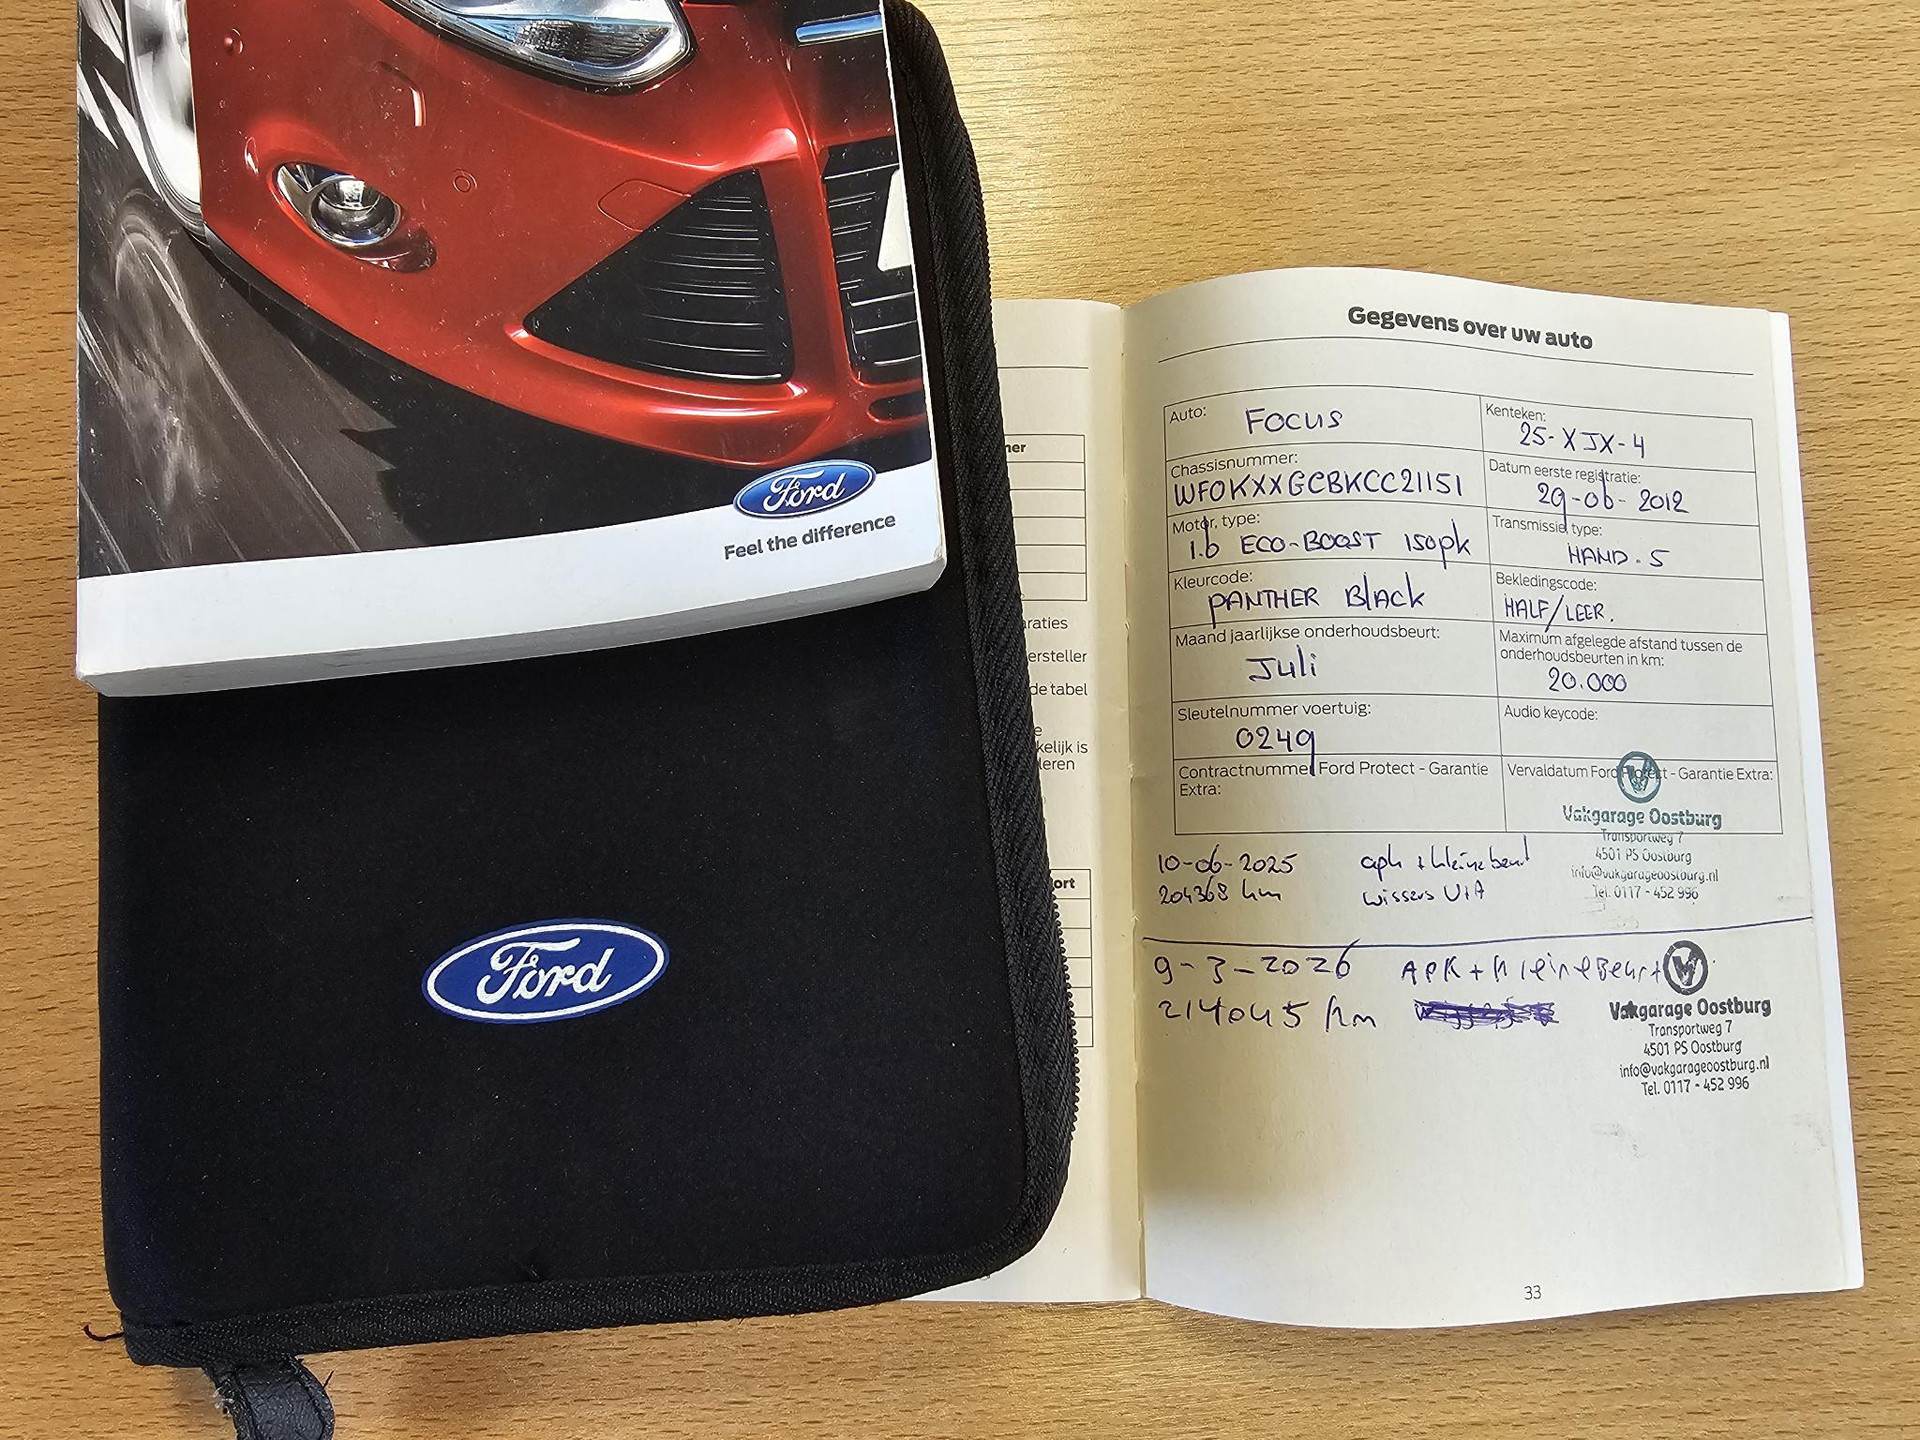 Ford
Feel the difference
Ford
ner
raties
ersteller
de tabel
e
kelijk is
leren
ort
Gegevens over uw auto
Auto: FOCUS
Kenteken: 25-XJX-4
Chassisnummer: WF0KXXGCBKCC21151
Datum eerste registratie: 29-06-2012
Motor, type: 1.6 ECO-BOOST 150pk
Transmissie, type: HAND. 5
Kleurcode: PANTHER Black
Bekledingscode: HALF/LEER.
Maand jaarlijkse onderhoudsbeurt: Juli
Maximum afgelegde afstand tussen de
onderhoudsbeurten in km: 20.000
Sleutelnummer voertuig: 0249
Audio keycode:
Contractnummer Ford Protect - Garantie
Extra:
Vervaldatum Ford Protect - Garantie Extra:
Vakgarage Oostburg
Transportweg 7
4501 PS Oostburg
info@vakgarageoostburg.nl
Tel. 0117 - 452 996
10-06-2025 apk + kleine beurt
204368 km wissers V+A
9-3-2026 APK + kleine Beurt
214045 km
Vakgarage Oostburg
Transportweg 7
4501 PS Oostburg
info@vakgarageoostburg.nl
Tel. 0117 - 452 996
33